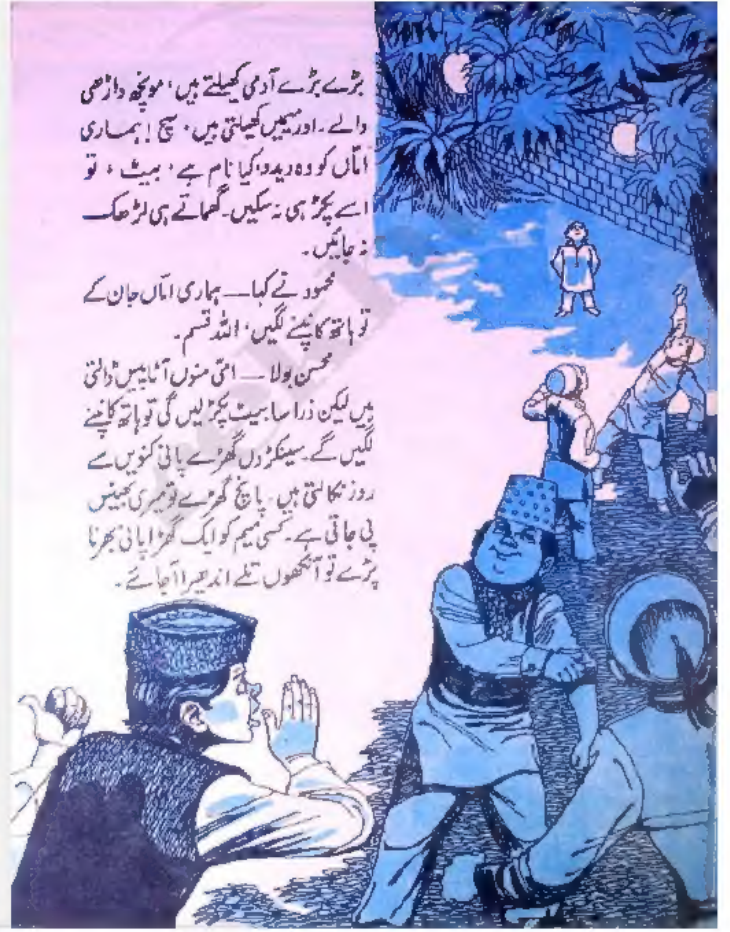 بڑے بڑے آدمی کھیلتے ہیں، مونچھ داڑھی
والے۔ اور میمیں کھیلتی ہیں، سچ! ہماری
امّاں کو وہ دیدو، کیا نام ہے، بیٹ، تو
اسے پکڑ ہی نہ سکیں۔ گھماتے ہی لڑھک
نہ جائیں۔
محمود نے کہا — ہماری امّاں جان کے
تو ہاتھ کانپنے لگیں، اللہ قسم۔
محسن بولا — امّی منوں آٹا پیس ڈالتی
ہیں لیکن ذرا سا بیٹ پکڑ لیں گی تو ہاتھ کانپنے
لگیں گے۔ سینکڑوں گھڑے پانی کنویں سے
روز نکالتی ہیں۔ پانچ گھڑے تو میری بھینس
پی جاتی ہے۔ کسی میم کو ایک گھڑا پانی بھرنا
پڑے تو آنکھوں تلے اندھیرا آجائے۔